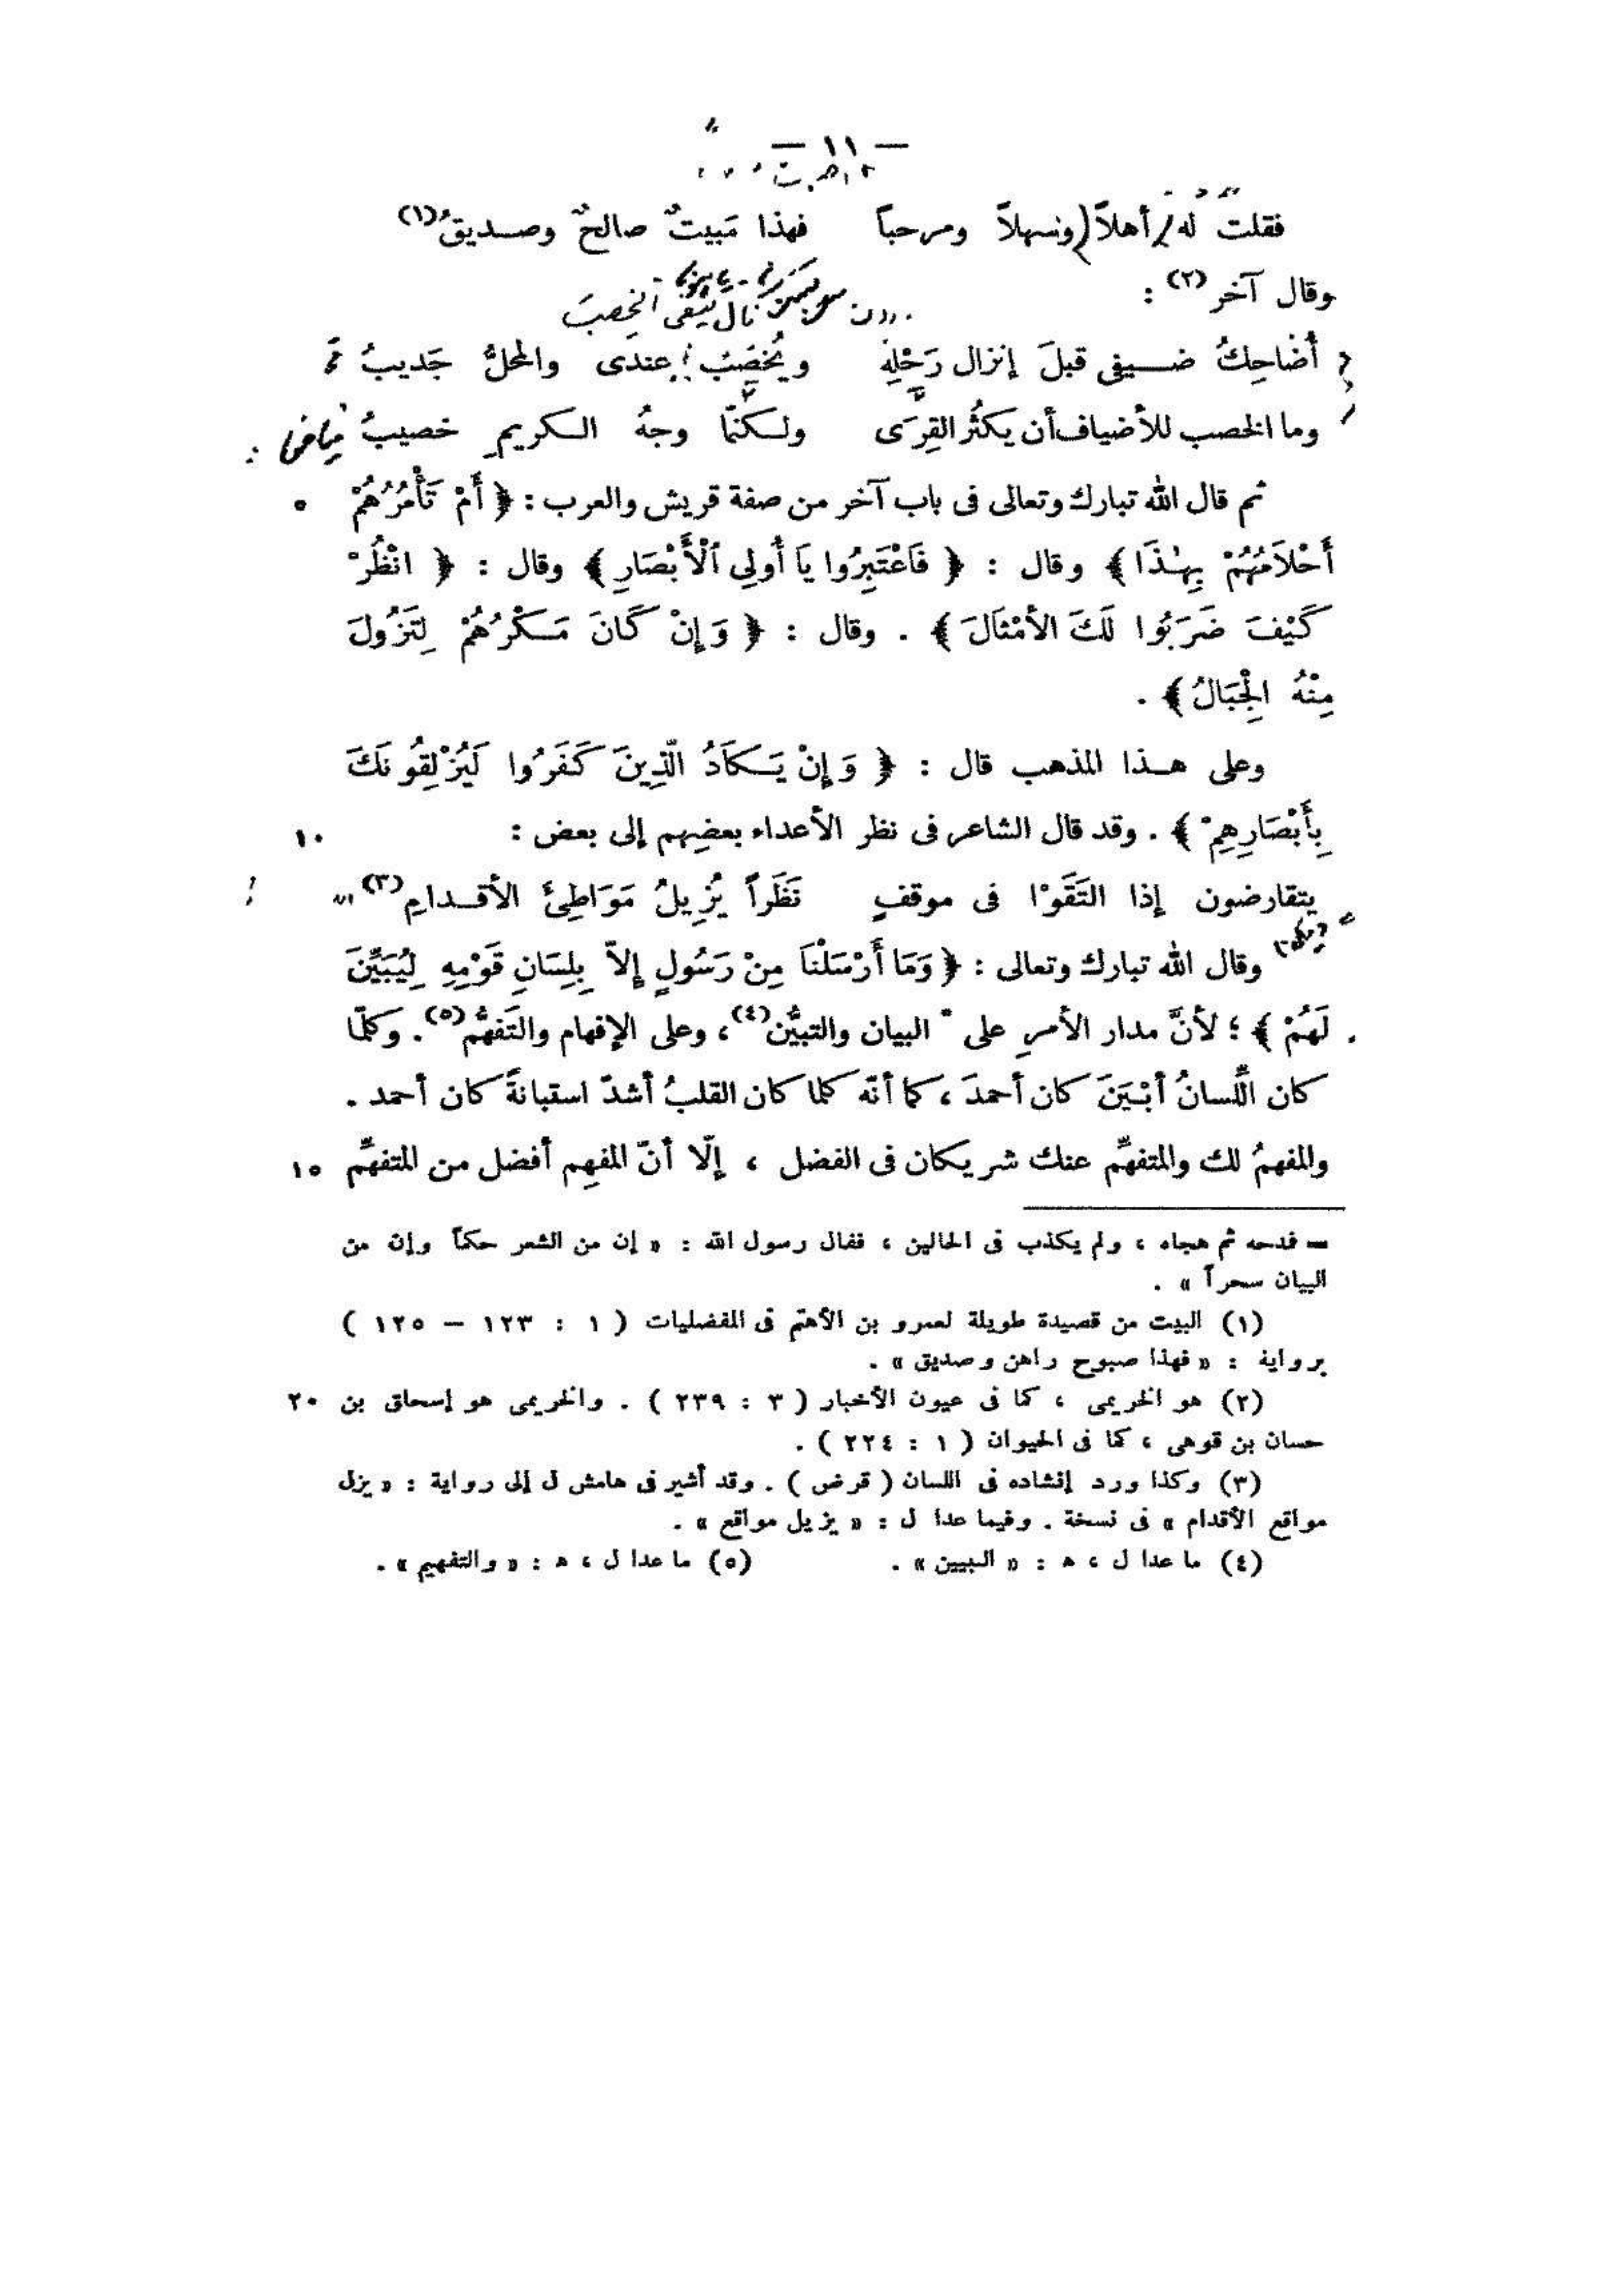 — ١١ —
فقلتُ له أهلاً وسهلاً ومرحباً فهذا مَبيتٌ صالحٌ وصديقُ(١)
وقال آخر(٢) :
أُضاحِكُ ضيفى قبلَ إنزال رَحْلِهِ ويُخصِبُ عندى والمحلُّ جَديبُ
وما الخصب للأضياف أن يكثُر القِرَى ولكنَّما وجهُ الكريمِ خصيبُ
ثم قال الله تبارك وتعالى فى باب آخر من صفة قريش والعرب : ﴿ أَمْ تَأْمُرُهُمْ ٥
أَحْلاَمُهُمْ بِهٰذَا ﴾ وقال : ﴿ فَاعْتَبِرُوا يَا أُولِى ٱلْأَبْصَارِ ﴾ وقال : ﴿ انْظُرْ
كَيْفَ ضَرَبُوا لَكَ الأَمْثَالَ ﴾ . وقال : ﴿ وَإِنْ كَانَ مَكْرُهُمْ لِتَزُولَ
مِنْهُ الْجِبَالُ ﴾ .
وعلى هذا المذهب قال : ﴿ وَإِنْ يَكَادُ الَّذِينَ كَفَرُوا لَيُزْلِقُونَكَ
بِأَبْصَارِهِمْ ﴾ . وقد قال الشاعر فى نظر الأعداء بعضِهم إلى بعض : ١٠
يتقارضون إذا التَقَوْا فى موقفٍ نَظَراً يُزِيلُ مَوَاطِئَ الأقدامِ(٣)
وقال الله تبارك وتعالى : ﴿ وَمَا أَرْسَلْنَا مِنْ رَسُولٍ إِلاّ بِلِسَانِ قَوْمِهِ لِيُبَيِّنَ
لَهُمْ ﴾ ؛ لأنَّ مدار الأمرِ على * البيان والتبيُّن(٤) ، وعلى الإفهام والتَفهُّم(٥) . وكلّما
كان اللِّسانُ أبْيَنَ كان أحمدَ ، كما أنّه كلما كان القلبُ أشدّ استبانةً كان أحمد .
والمفهمُ لك والمتفهِّم عنك شريكان فى الفضل ، إلّا أنّ المفهِم أفضل من المتفهِّم ١٥
= فمدحه ثم هجاه ، ولم يكذب فى الحالين ، فقال رسول الله : « إن من الشعر حكماً وإن من
البيان سحراً » .
(١) البيت من قصيدة طويلة لعمرو بن الأهتم فى المفضليات ( ١ : ١٢٣ – ١٢٥ )
برواية : « فهذا صبوح راهن وصديق » .
(٢) هو الخريمى ، كما فى عيون الأخبار ( ٣ : ٢٣٩ ) . والخريمى هو إسحاق بن ٢٠
حسان بن قوهى ، كما فى الحيوان ( ١ : ٢٢٤ ) .
(٣) وكذا ورد إنشاده فى اللسان ( قرض ) . وقد أشير فى هامش ل إلى رواية : « يزل
مواقع الأقدام » فى نسخة . وفيما عدا ل : « يزيل مواقع » .
(٤) ما عدا ل ، ه : « التبيين » . (٥) ما عدا ل ، ه : « والتفهيم » .